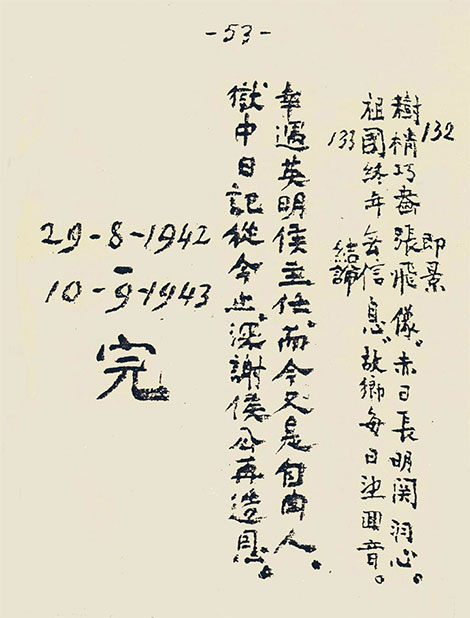 -53-
132
即景
樹梢巧畫張飛像。赤日長明関羽心。
祖國終年无信息。故鄉每日望囬音。
133
結論
幸遇英明侯主任。而今又是自由人。
獄中日記從今止。深謝侯公再造恩。
29-8-1942
-
10-9-1943
完